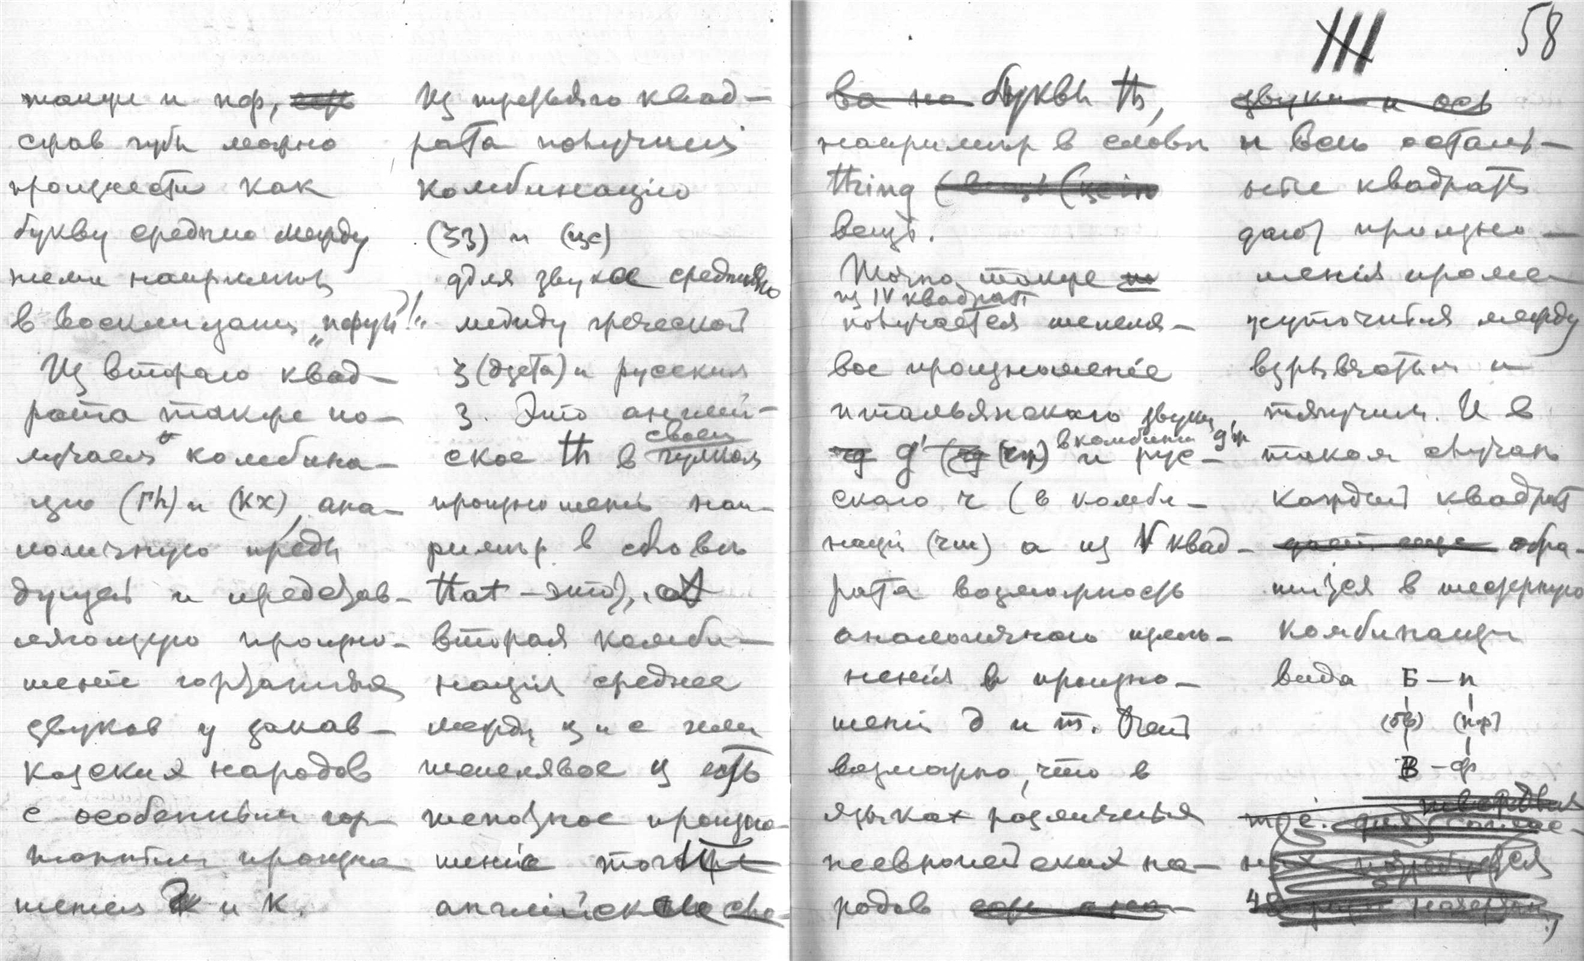 также и пф,
сразу губы можно
произнести как
букву среднюю между
ними например
в восклицании „пфуй!"
Из второго квад-
рата также по-
лучаем комбина-
цию (гh) и (кх), ана-
логичную преды
дущей и представ-
ляющую произно-
шение гортанных
звуков у кавказ-
казских народов
с особенным гор-
танным произно
шением и к.
Из третьяго квад-
рата получить
комбинацію
(ζз) и (цс)
для звука средняго
между греческой
ζ (дзета) и русским
з. Это англій-
ское th в своем
произношеніи нап-
ример в словѣ
that - это),
вторая комби-
нація среднее
между ц и с или
шепелявое ц есть
шепелявое произно-
шеніе
английск
58
III
ва на буквы th,
например в словѣ
thing
вещь.
Точно также
из IV квадрата
получается шепеля-
вое произношеніе
итальянскаго звука
g' в комбинации и рус-
скаго ч (в комби-
нації (чш) а из V квад-
рата возможность
аналогичнаго
ненія в произно-
шеніи д и т. Очень
возможно, что в
языках различных
неевропейских на-
родов
звука и ось
и всѣ осталь-
ные квадраты
дают произно-
шенія проме-
жуточныя между
взрывчатым и
тягучим. И в
таком случаѣ
каждый квадрат
дает еще обра-
тится в шестерную
комбинацию
вида Б — п
(бв) (пф)
В — ф